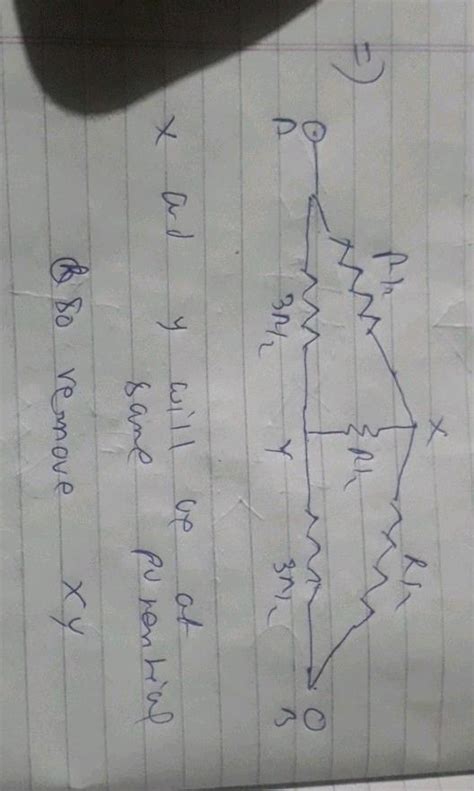 =)
X
R/2
R/2
R/2
A
3R/2
Y
3R/2
B
X and Y will be at
same potential
So remove XY